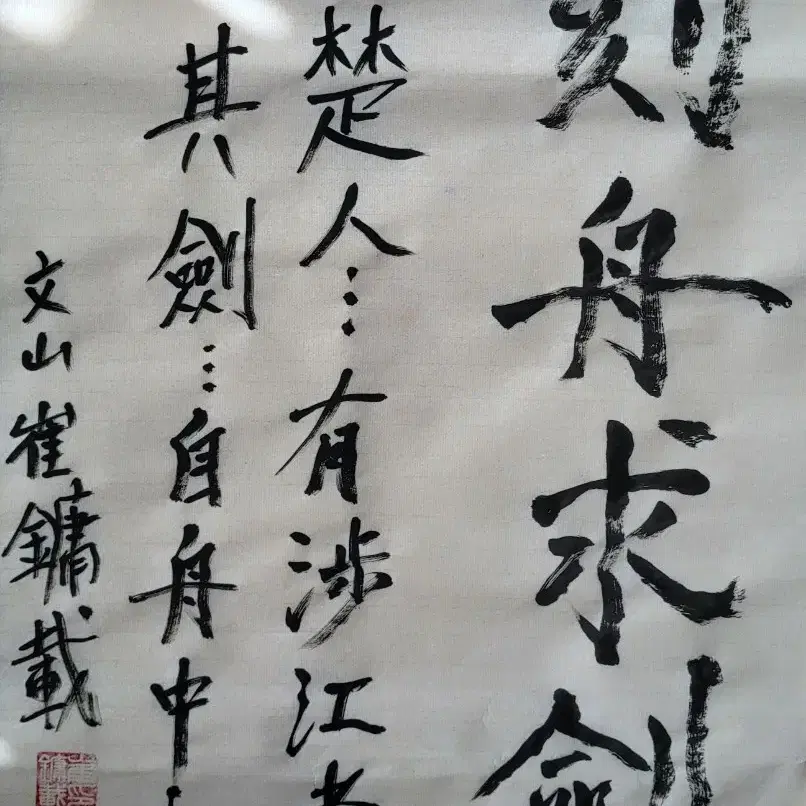 刻舟求劍
楚人⋮有涉江者
其劍⋮自舟中
文山 崔鏞載